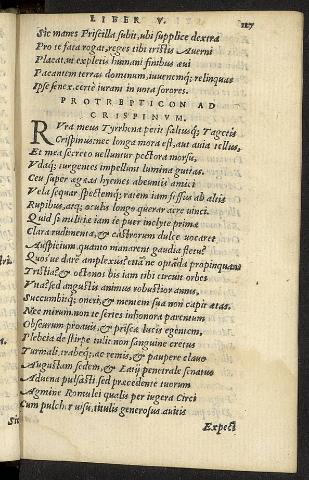 LIBER V. 127
Sic manes Priscilla subit, ubi supplice dextra
Pro te fata rogat, reges tibi tristis Averni
Placat, ut expletis humani finibus aevi
Pacantem terras dominum, iuvenemq; relinquas
Ipse senex. certae iurant in vota sorores.
PROTREPTICON AD
CRISPINVM.
RVra meus Tyrrhena petit saltusq; Tagetis
Crispinus: nec longa mora est, aut avia tellus,
Et mea secreto velluntur pectora morsu,
Vdaq; turgentes impellunt lumina guttas.
Ceu super aegaeas hyemes abeuntis amici
Vela sequar spectemq; ratem iam fessus ab altis
Rupibus, atq; oculis longo querar aere vinci.
Quid si militiae iam te puer inclyte primae
Clara rudimenta, & castrorum dulce vocaret
Auspicium. quanto manarent gaudia fletu?
Quos ve darem amplexus? etiam ne optada propinquans
Tristia? & octonos bis iam tibi circuit orbes
Vita? sed angustis animus robustior annis,
Succumbitq; oneri, & mentem sua non capit aetas.
Nec mirum. non te series inhonora parentum
Obscurum proavis, & priscae lucis egentem,
Plebeia de stirpe tulit: non sanguine cretus
Turmali, trabeq; ac remis, & paupere clavo
Augustam sedem, & Latij penetrale senatus
Advena pulsasti. sed praecedente tuorum
Agmine Romulei qualis per iugera Circi
Cum pulcher visu, titulis generosus avitis
Expect